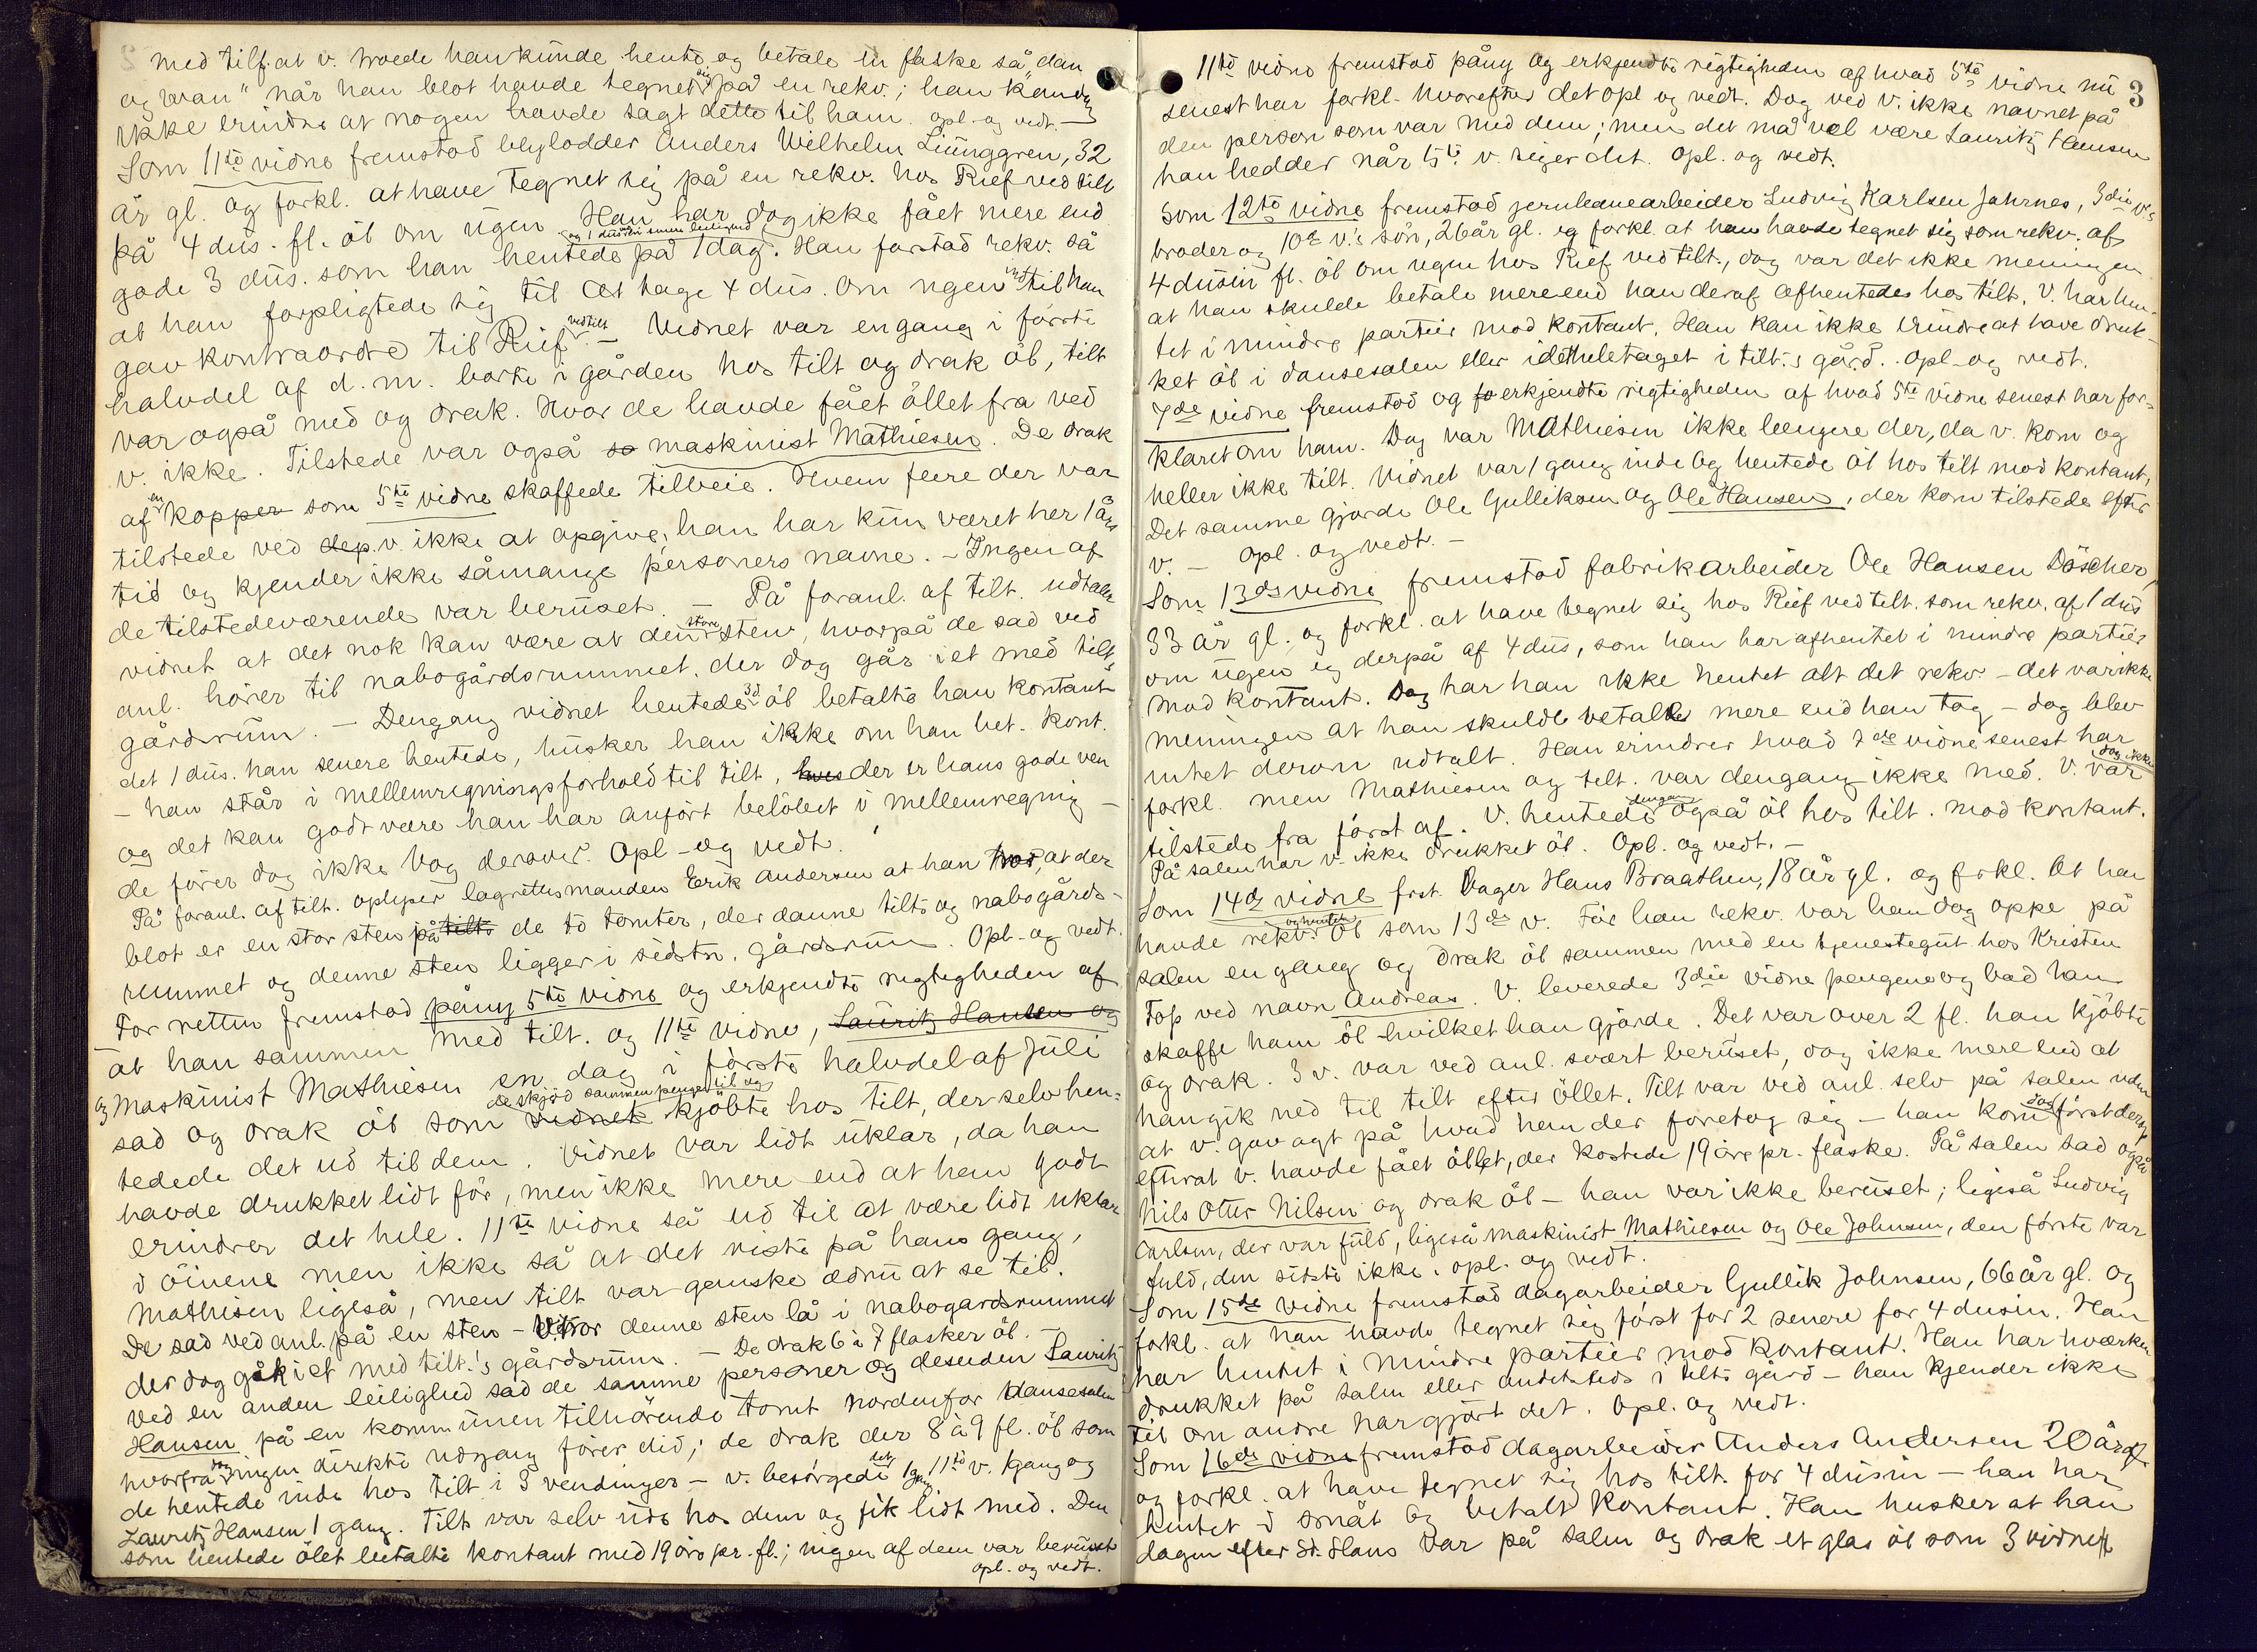 med tilf. at v. troede han kunde hente og betale en flaske så „dan
og wan" når han blot havde tegnet sig på en rekv.; han kan dog
ikke erindre at nogen havde sagt dette til ham. opl. og vedt. —
Som 11te vidne fremstod bryloddes Anders Wilhelm Liunggren, 32
år gl. og forkl. at have tegnet sig på en rekv. hos Rief ved tilt
på 4 dus. fl. öl om ugen Han har dog ikke fået mere end
og 1 dusin senere leilighed
gode 3 dus. som han hentede på 1 dag. Han forstod rekv. så
at han forpligtede sig til at tage 4 dus. om ugen indtil han
gav kontraordre til Rief ved tilt — Vidnet var engang i förste
halvdel af d. m. borte i gården hos tilt og drak öl, tilt
var også med og drak. Hvor de havde fået öllet fra ved
v. ikke. Tilstede var også so maskinist Mathiesen. De drak
af en kopper som 5te vidne skaffede tilveie. Hvem flere der var
tilstede ved dep. v. ikke at opgive, han har kun været her 1 års
tid og kjender ikke såmange personers navne. — Ingen af
de tilstedeværende var beruset. — På foranl. af tilt. udtaler
vidnet at det nok kan være at den store sten, hvorpå de sad ved
anl. hörer til nabogårdsrummet, der dog går i et med tilts
gårdsrum. — Dengang vidnet hentede 3d. öl betalte han kontant
det 1 dus. han senere hentede, husker han ikke om han bet. kont.
— han står i mellemregningsforhold til tilt, hvis der er hans gode ven
og det kan godt være han har anfört belöbet i mellemregnig —
de förer dog ikke bog derover. Opl. og vedt.
På foranl. af tilt. oplyser lagrettesmanden Erik Andersen at han tror, at der
blot er en stor sten på tilts de to tomter, der danne tilts og nabogårds-
rummet og denne sten ligger i sidstn. gårdsrum. Opl. og vedt.
For retten fremstod påny 5te vidne og erkjendte rigtigheden af
at han sammen med tilt. og 11te vidne, Lauritz Hansen og
og maskinist Mathiesen en dag i förste halvdel af Juli
de skjöd sammen penger til og
sad og drak öl som vidnet kjöbte hos tilt, der selv hen-
tedede det ud til dem. Vidnet var lidt uklar, da han
havde drukket lidt för, men ikke mere end at han godt
erindrer det hele. 11te vidne så ud til at være lidt uklar
i öinene men ikke så at det viste på hans gang,
Mathisen ligeså, men tilt var ganske ædru at se til.
De sad ved anl. på en sten — V. tror denne sten lå i nabogardsrummet
der dog gik i et med tilt.'s gårdsrum. — De drak 6 à 7 flasker öl. —
Ved en anden leilighed sad de samme personer og desuden Lauritz
Hansen på en kommunen tilhörende tomt nordenfor dansesalen
hvorfra dog ingen direkte udgang förer did; de drak der 8 à 9 fl. öl som
de hentede inde hos tilt i 3 vendinger — v. besörgede det 1 gang 11te v. 1 gang og
Lauritz Hansen 1 gang. Tilt var selv ude hos dem og fik lidt med. Den
som hentede ölet betalte kontant med 19 öre pr. fl.; ingen af dem var beruset
opl. og vedt.
3
11te vidne fremstod påny og erkjendte rigtigheden af hvad 5te vidne nu
senest har forkl. hvorefter det opl og vedt. Dog ved v. ikke navnet på
den person som var med dem; men det må vel være Lauritz Hansen
han hedder når 5te v. siger det. Opl. og vedt.
Som 12te vidne fremstod jernbanearbeider Ludvig Karlsen Jahrnes, 3die v.'s
broder og 10de v.'s sön, 26 år gl. og forkl. at han havde tegnet sig som rekv. af
4 dusin fl. öl om ugen hos Rief ved tilt., dog var det ikke meningen
at han skulde betale mere end han deraf afhentedes hos tilt. V. har hen-
tet i mindre partier mod kontant. Han kan ikke erindre at have druk-
ket öl i dansesalen eller idethele taget i tilt.s gård. Opl. og vedt.
7de vidne fremstod og fo erkjendte rigtigheden af hvad 5te vidne senest har for-
klaret om ham. Dog var Mathiesen ikke længere der, da v. kom og
heller ikke tilt. Vidnet var 1 gang inde og hentede öl hos tilt mod kontant,
Det samme gjorde Ole Gulliksen og Ole Hansen, der kom tilstede efter
v. — Opl. og vedt. —
Som 13de vidne fremstod fabrikarbeider Ole Hansen Döscher,
33 år gl. og forkl. at have tegnet sig hos Rief ved tilt. som rekv. af 1 dus
om ugen og derpå af 4 dus, som han har afhentet i mindre partier
mod kontant. Dog har han ikke hentet alt det rekv. — det var ikke
meningen at han skulde betale mere end han tog — dog blev
intet derom udtalt. Han erindrer hvad 7de vidne senest har
forkl. men Mathiesen og tilt. var dengang ikke med. V. var dog ikke
tilstede fra först af. V. hentede dengang også öl hos tilt. mod kontant.
På salen har v. ikke drukket öl. Opl. og vedt. —
Som 14de vidne frst. Bager Hans Braathen, 18 år gl. og frkl. at han
havde rekv. og hentet öl som 13de v. För han rekv. var han dog oppe på
salen engang og drak öl sammen med en tjenestegut hos Kristen
Fop ved navn Andreas. V. leverede 3die vidne pengene og bad ham
skaffe ham öl hvilket han gjorde. Det var over 2 fl. han kjöbte
og drak. 3 v. var ved anl. svært beruset, dog ikke mere end at
han gik ned til tilt efter öllet. Tilt var ved anl. selv på salen uden
at v. gav agt på hvad han der foretog sig — han kom dog först derop
efterat v. havde fået öllet, der kostede 19 öre pr. flaske. På salen sad også
Nils Otter Nilsen og drak öl — han var ikke beruset; ligeså Ludvig
Carlsen, der var fuld, ligeså maskinist Mathiesen og Ole Johnsen, den förste var
fuld, den sidste ikke. opl. og vedt.
Som 15de vidne fremstod dagarbeider Gullik Johnsen, 66 år gl. og
forkl. at han havde tegnet sig först for 2 senere for 4 dusin. Han
har hentet i mindre partier mod kontant. Han har hværken
drukket på salen eller andetsteds i tilts gård — han kjender ikke
til om andre har gjört det. Opl. og vedt.
Som 16de vidne fremstod dagarbeider Anders Andersen 20 år gl
og forkl. at have tegnet sig hos tilt. for 4 dusin — han har
hentet i småt og betalt kontant. Han husker at han
dagen efter St. Hans var på salen og drak et glas öl som 3 vidne